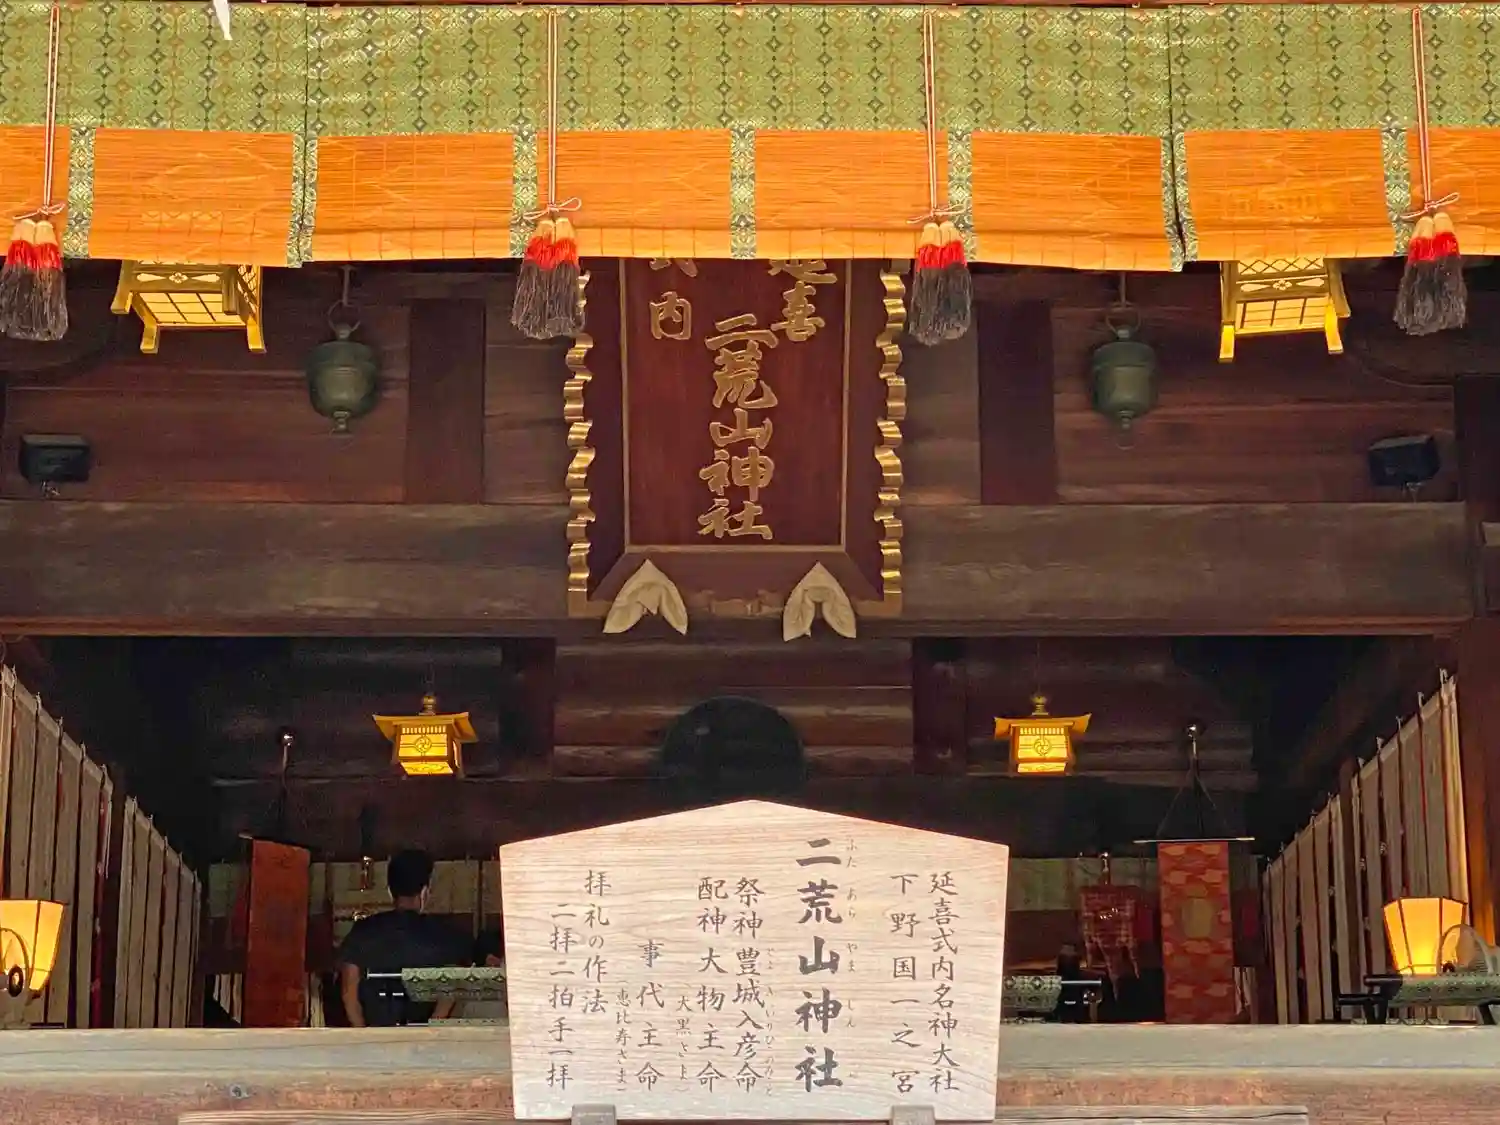 延喜
式内
二荒山神社
延喜式内名神大社
下野国一之宮
二荒山神社
ふた あら やま しん
祭神 豊城入彦命
とよ き いりひこのみこと
配神 大物主命
大黒さま
事代主命
恵比寿さま
拝礼の作法
二拝二拍手一拝